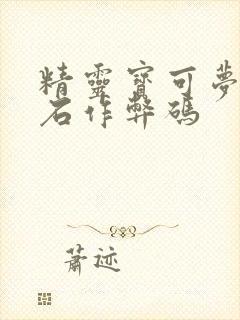 精靈寶可夢
石作弊碼
蕭迹